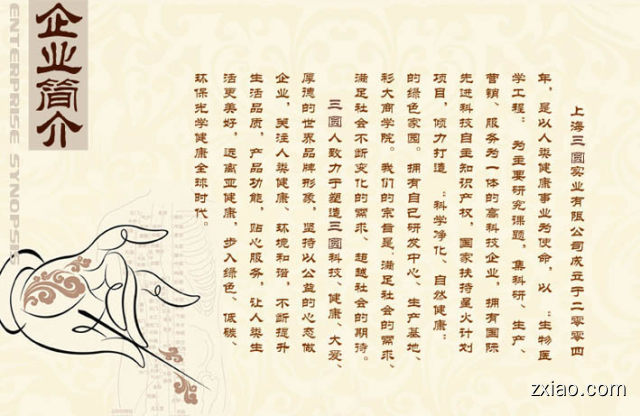 企业简介
ENTERPRISE SYNOPSIS
上海三圆实业有限公司成立于二零零四
年，是以人类健康事业为使命，以 :生物医
学工程： 为主要研究课题，集科研、生产、
营销、服务为一体的高科技企业，拥有国际
先进科技自主知识产权，国家扶持星火计划
项目，倾力打造 :科学净化、自然健康：
的绿色家园。拥有自己研发中心、生产基地、
彩大商学院。我们的宗旨是:满足社会的需求、
满足社会不断变化的需求、超越社会的期待。
三圆人致力于塑造三圆科技、健康、大爱、
厚德的世界品牌形象，坚持以公益的心态做
企业，关注人类健康、环境和谐，不断提升
生活品质，产品功能，贴心服务，让人类生
活更美好，远离亚健康，步入绿色、低碳、
环保光学健康全球时代。
zxiao.com